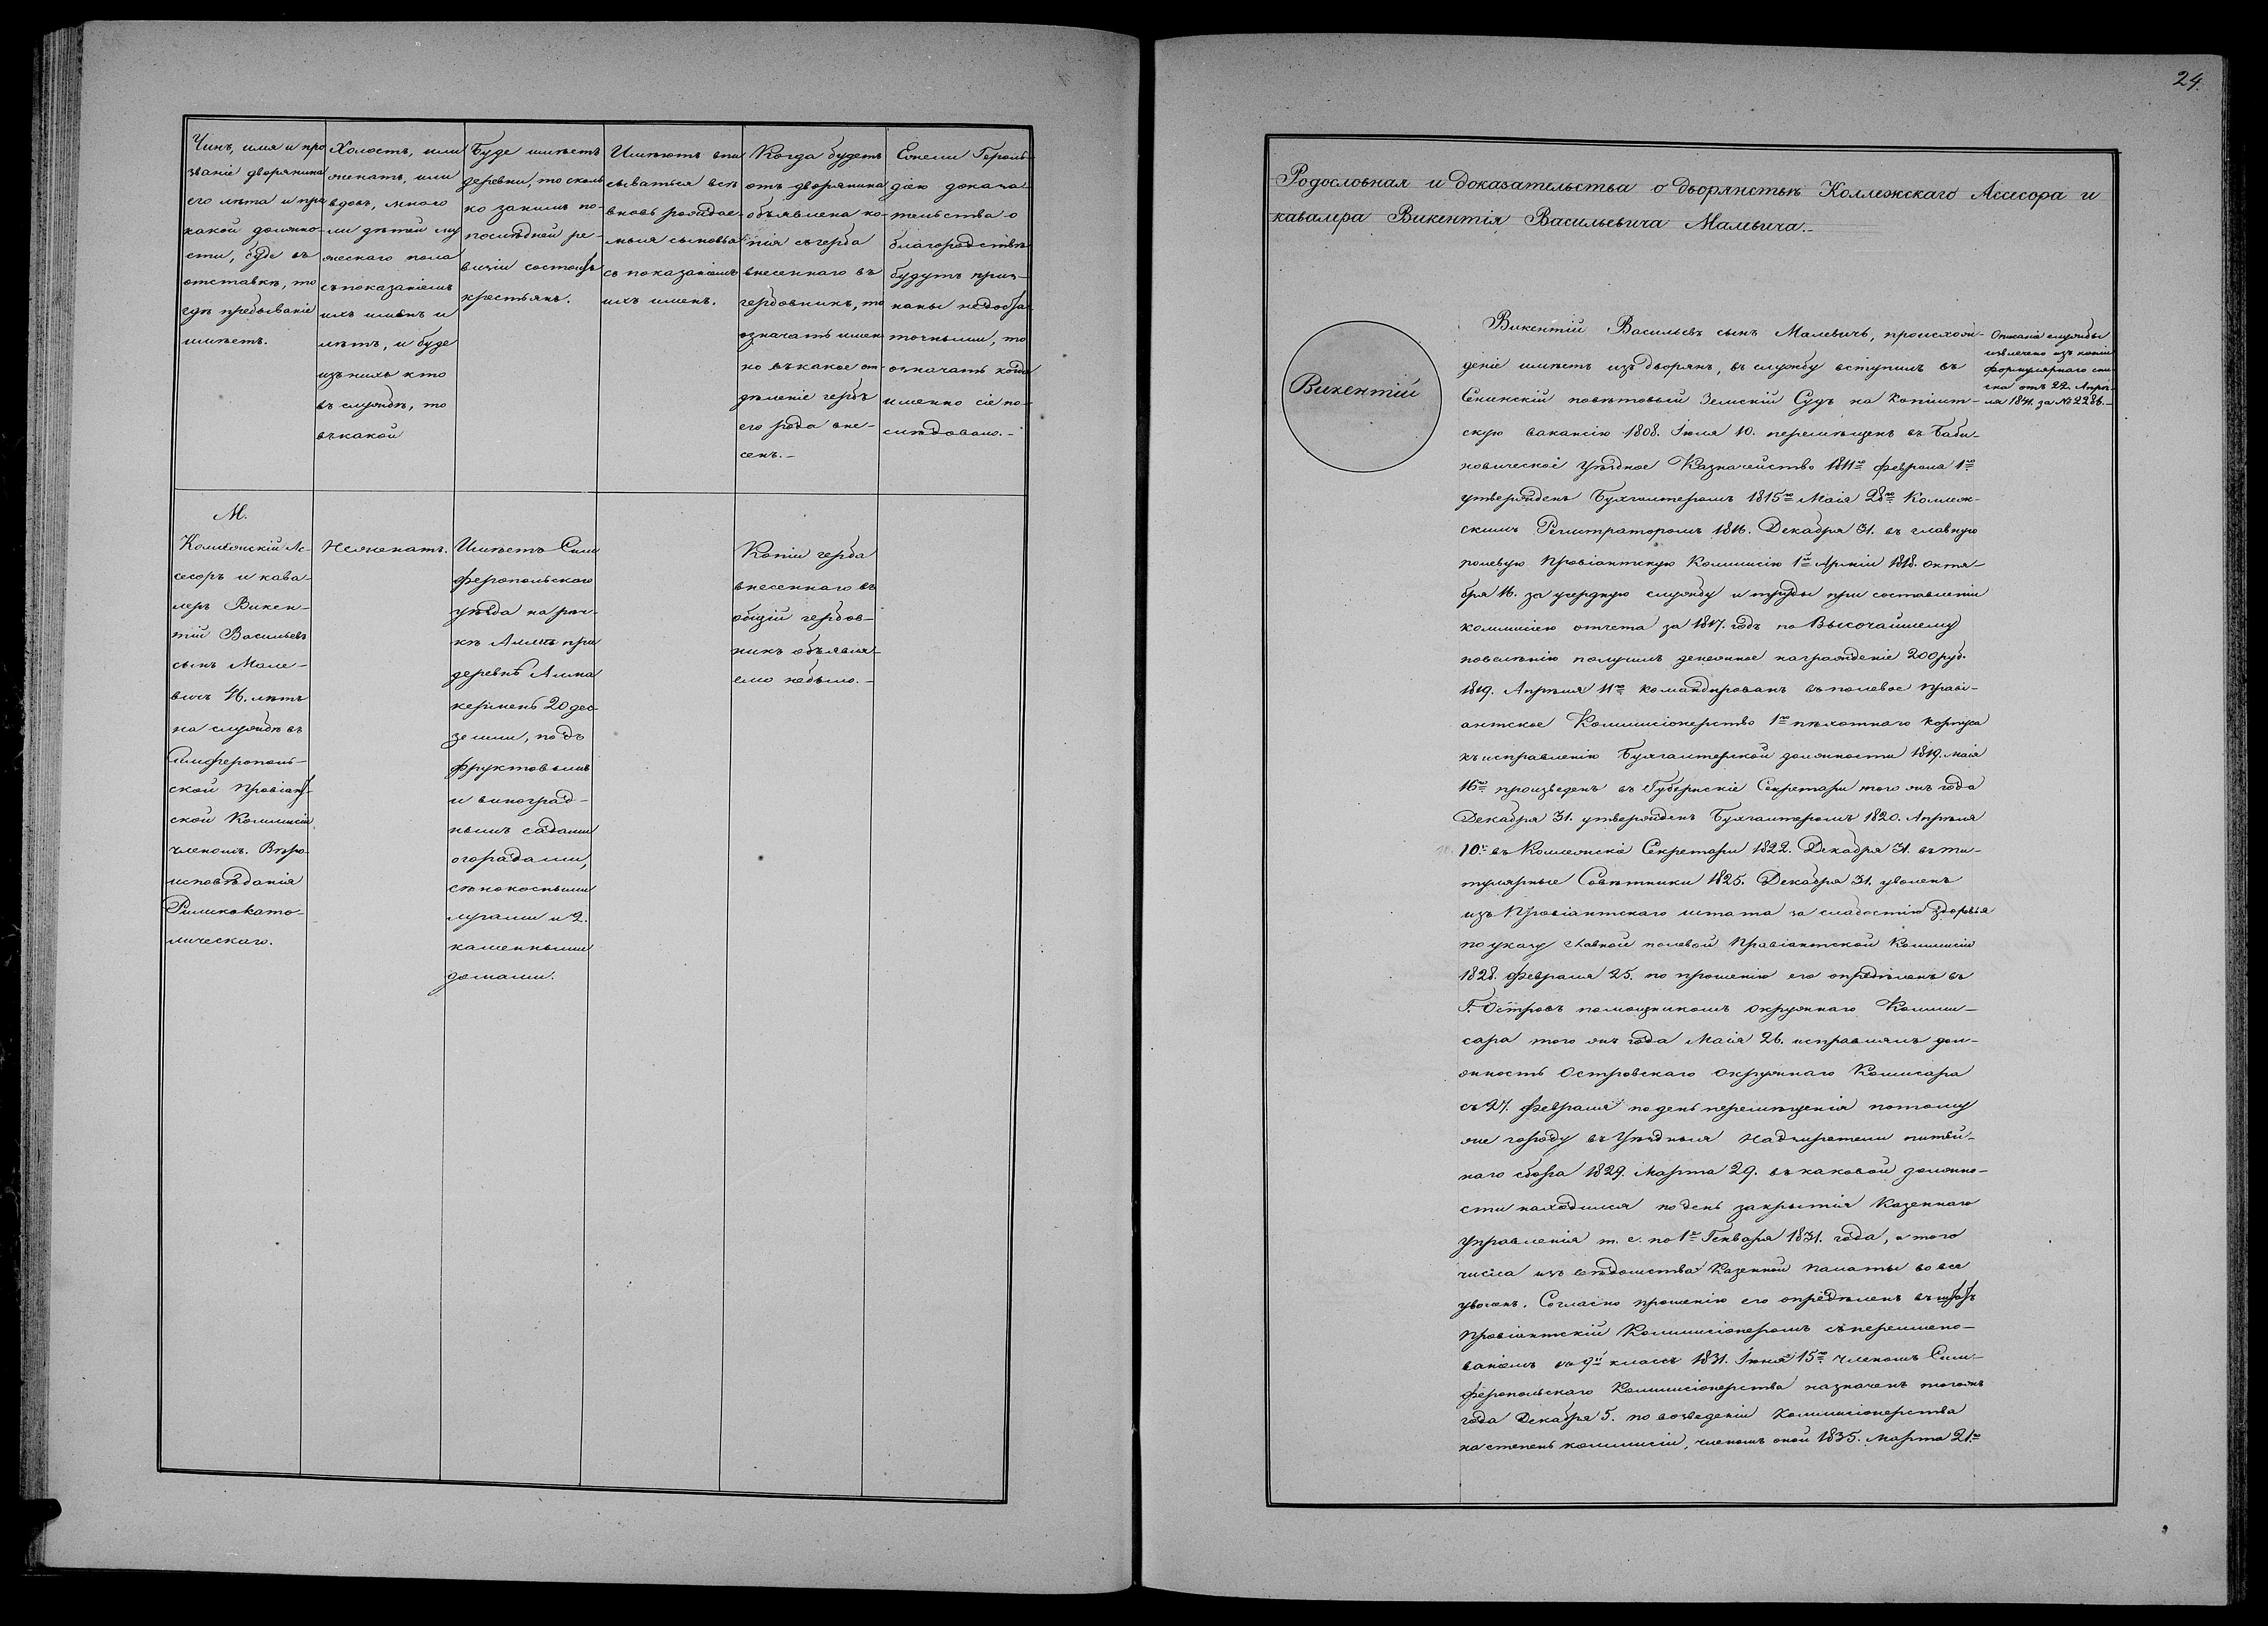 Чинъ, имя и про
званіе дворянина
его лѣта и при
какой должно-
сти, буде въ
отставкѣ, то
гдѣ пребываніе
имѣетъ.
Холостъ, или
женатъ, или
вдовъ, много
ли дѣтей му
жескаго пола
съ показаніемъ
ихъ именъ и
лѣтъ, и буде
изъ нихъ кто
въ службѣ, то
въ какой
Буде имѣетъ
деревни, то сколь
ко за нимъ по-
послѣдней ре-
визіи состоитъ
крестьянъ.
Имѣютъ впи
сываться всѣ
вновь рождае-
мыя сыновья
съ показаніемъ
ихъ именъ.
Когда будетъ
отъ дворянина
объявлена ко-
пія съ герба
внесеннаго въ
гербовникъ, то
означать имен
но въ какое от-
дѣленіе гербъ
его рода вне-
сенъ.-
Ежели Героль-
діею доказа
тельства о
благородствѣ
будутъ приз-
наны недоста
точными, то
означать когда
именно сіе по-
слѣдовало.-
М.
Коллежскій Ас-
сесоръ и кава-
леръ Викен-
тій Васильевъ
сынъ Мале-
вичъ 46. лѣтъ
на службѣ въ
Симферополь-
ской Провіант-
ской Коммисіи
членомъ. Вѣро-
исповѣданія
Римскокато-
лическаго.
Неженатъ.
Имѣетъ Сим
феропольскаго
уѣзда на рѣч-
кѣ Алмѣ при
деревнѣ Алма
керменъ 20 дес-
земли, подъ
фруктовымъ
и виноград-
нымъ садами
огородами,
сѣнокосными
лугами и 2.
каменными
домами.
Копіи герба
внесеннаго въ
общій гербов-
никъ объявля-
емо небыло.-
24.
Родословная и доказательства о дворянствѣ Коллежскаго Ассесора и
кавалера Викентія Васильевича Малевича.-
Викентій
Викентій Васильевъ сынъ Малевичъ, происхож-
деніе имѣетъ изъ дворянъ, въ службу вступилъ въ
Сенинскій повѣтовый Земскій Судъ на Копіист-
скую вакансію 1808. Іюля 10. перемѣщенъ въ Баби-
новическое Уѣздное Казначейство 1811го февраля 1го
утвержденъ Бухгалтеромъ 1815го Маія 28го Коллеж-
скимъ Регистраторомъ 1816. Декабря 31. въ главную
полевую Провіантскую Коммисію 1й Арміи 1818. октя-
бря 16. за усердную службу и труды при составленіи
коммисіею отчета за 1817. годъ по Высочайшему
повелѣнію получилъ денежное награжденіе 200 руб.
1819. Апрѣля 11го командированъ въ полевое Прові-
антское Коммисіонерство 1го пѣхотнаго корпуса
къ исправленію Бухгалтерской должности 1819. Маія
16го произведенъ въ Губернскіе Секретари того жъ года
Декабря 31. утвержденъ Бухгалтеромъ 1820. Апрѣля
10го въ Коллежскіе Секретари 1822. Декабря 31. въ ти-
тулярные Совѣтники 1825. Декабря 31. уволенъ
изъ Провіантскаго штата за слабостію здоровья
по указу главной полевой Провіантской Коммисіи
1828. февраля 25. по прошенію его опредѣленъ въ
Г. Островъ помощникомъ окружнаго Комми-
сара того жъ года Маія 26. исправлялъ дол-
жность Островскаго Окружнаго Комисара
съ 27. февраля по день перемѣщенія потому
же городу въ Уѣздныя Надзиратели питей-
наго сбора 1829. Марта 29. въ каковой должно-
сти находился по день закрытія Казеннаго
Управленія т. е. по 1е Генваря 1831. года, а того
числа изъ вѣдомства Казенной Палаты во все
уволенъ. Согласно прошенію его опредѣленъ въ штатъ
Провіантскій Коммисіонеромъ съ переимено-
ваніемъ въ 9й классъ 1831. Іюня 15го членомъ Сим-
феропольскаго Коммисіонерства назначенъ тогожъ
года Декабря 5. по возведеніи Коммисіонерства
на степень коммисіи, членомъ оной 1835. Марта 21го
Описаніе службы
извлечено изъ копіи
формулярнаго спи-
ска отъ 22. Апрѣ-
ля 1841. за № 2286.-